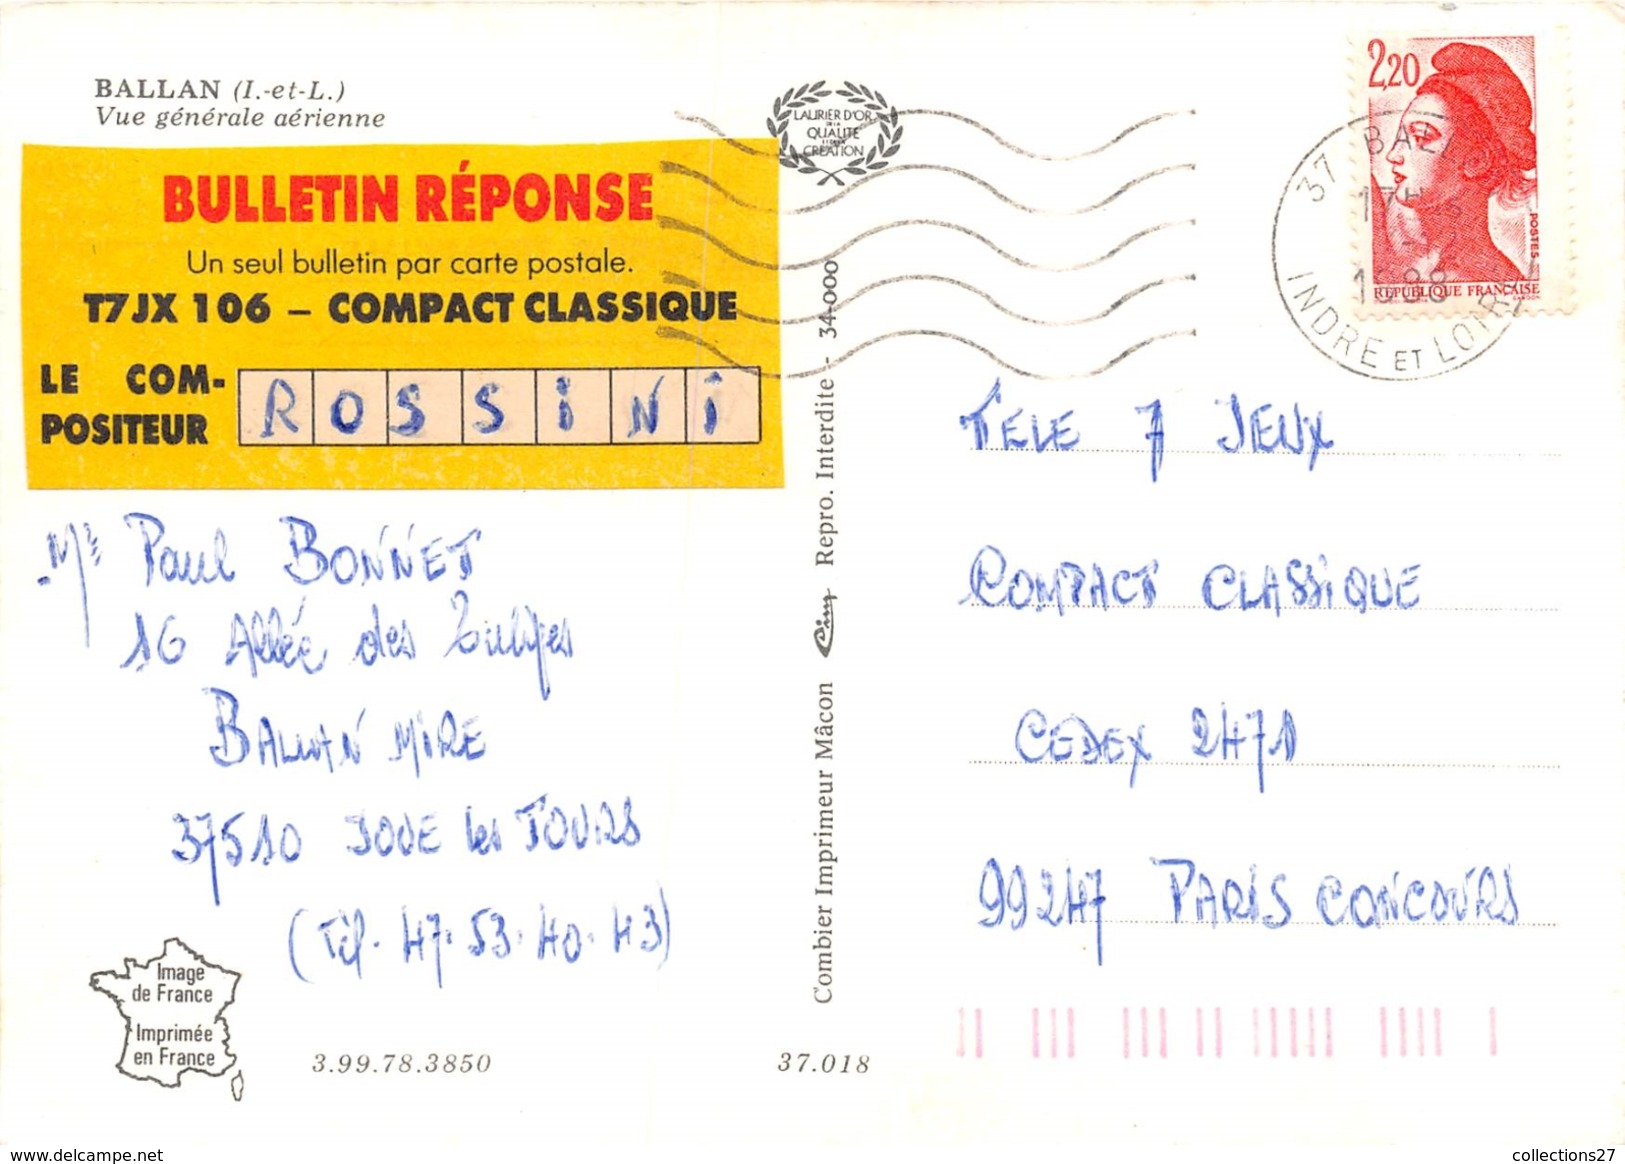 BALLAN (I.-et-L.)
Vue générale aérienne
BULLETIN RÉPONSE
Un seul bulletin par carte postale.
T7JX 106 – COMPACT CLASSIQUE
LE COM-
POSITEUR
ROSSiNi
Paul BONNET
16 Allée des Tulipes
BALLAN MIRE
37510 JOUE les TOURS
(Tél. 47.53.40.43)
Image
de France
Imprimée
en France
3.99.78.3850
37.018
LAURIER D'OR
DE LA
QUALITÉ
CRÉATION
Combier Imprimeur Mâcon Cim Repro. Interdite - 34-000
2,20
POSTES
RÉPUBLIQUE FRANÇAISE
37 BALL
17H
1988
INDRE ET LOIRE
TELE 7 JEUX
COMPACT CLASSiQUE
CEDEX 2471
99247 PARIS CONCOURS
www.delcampe.net
collections27